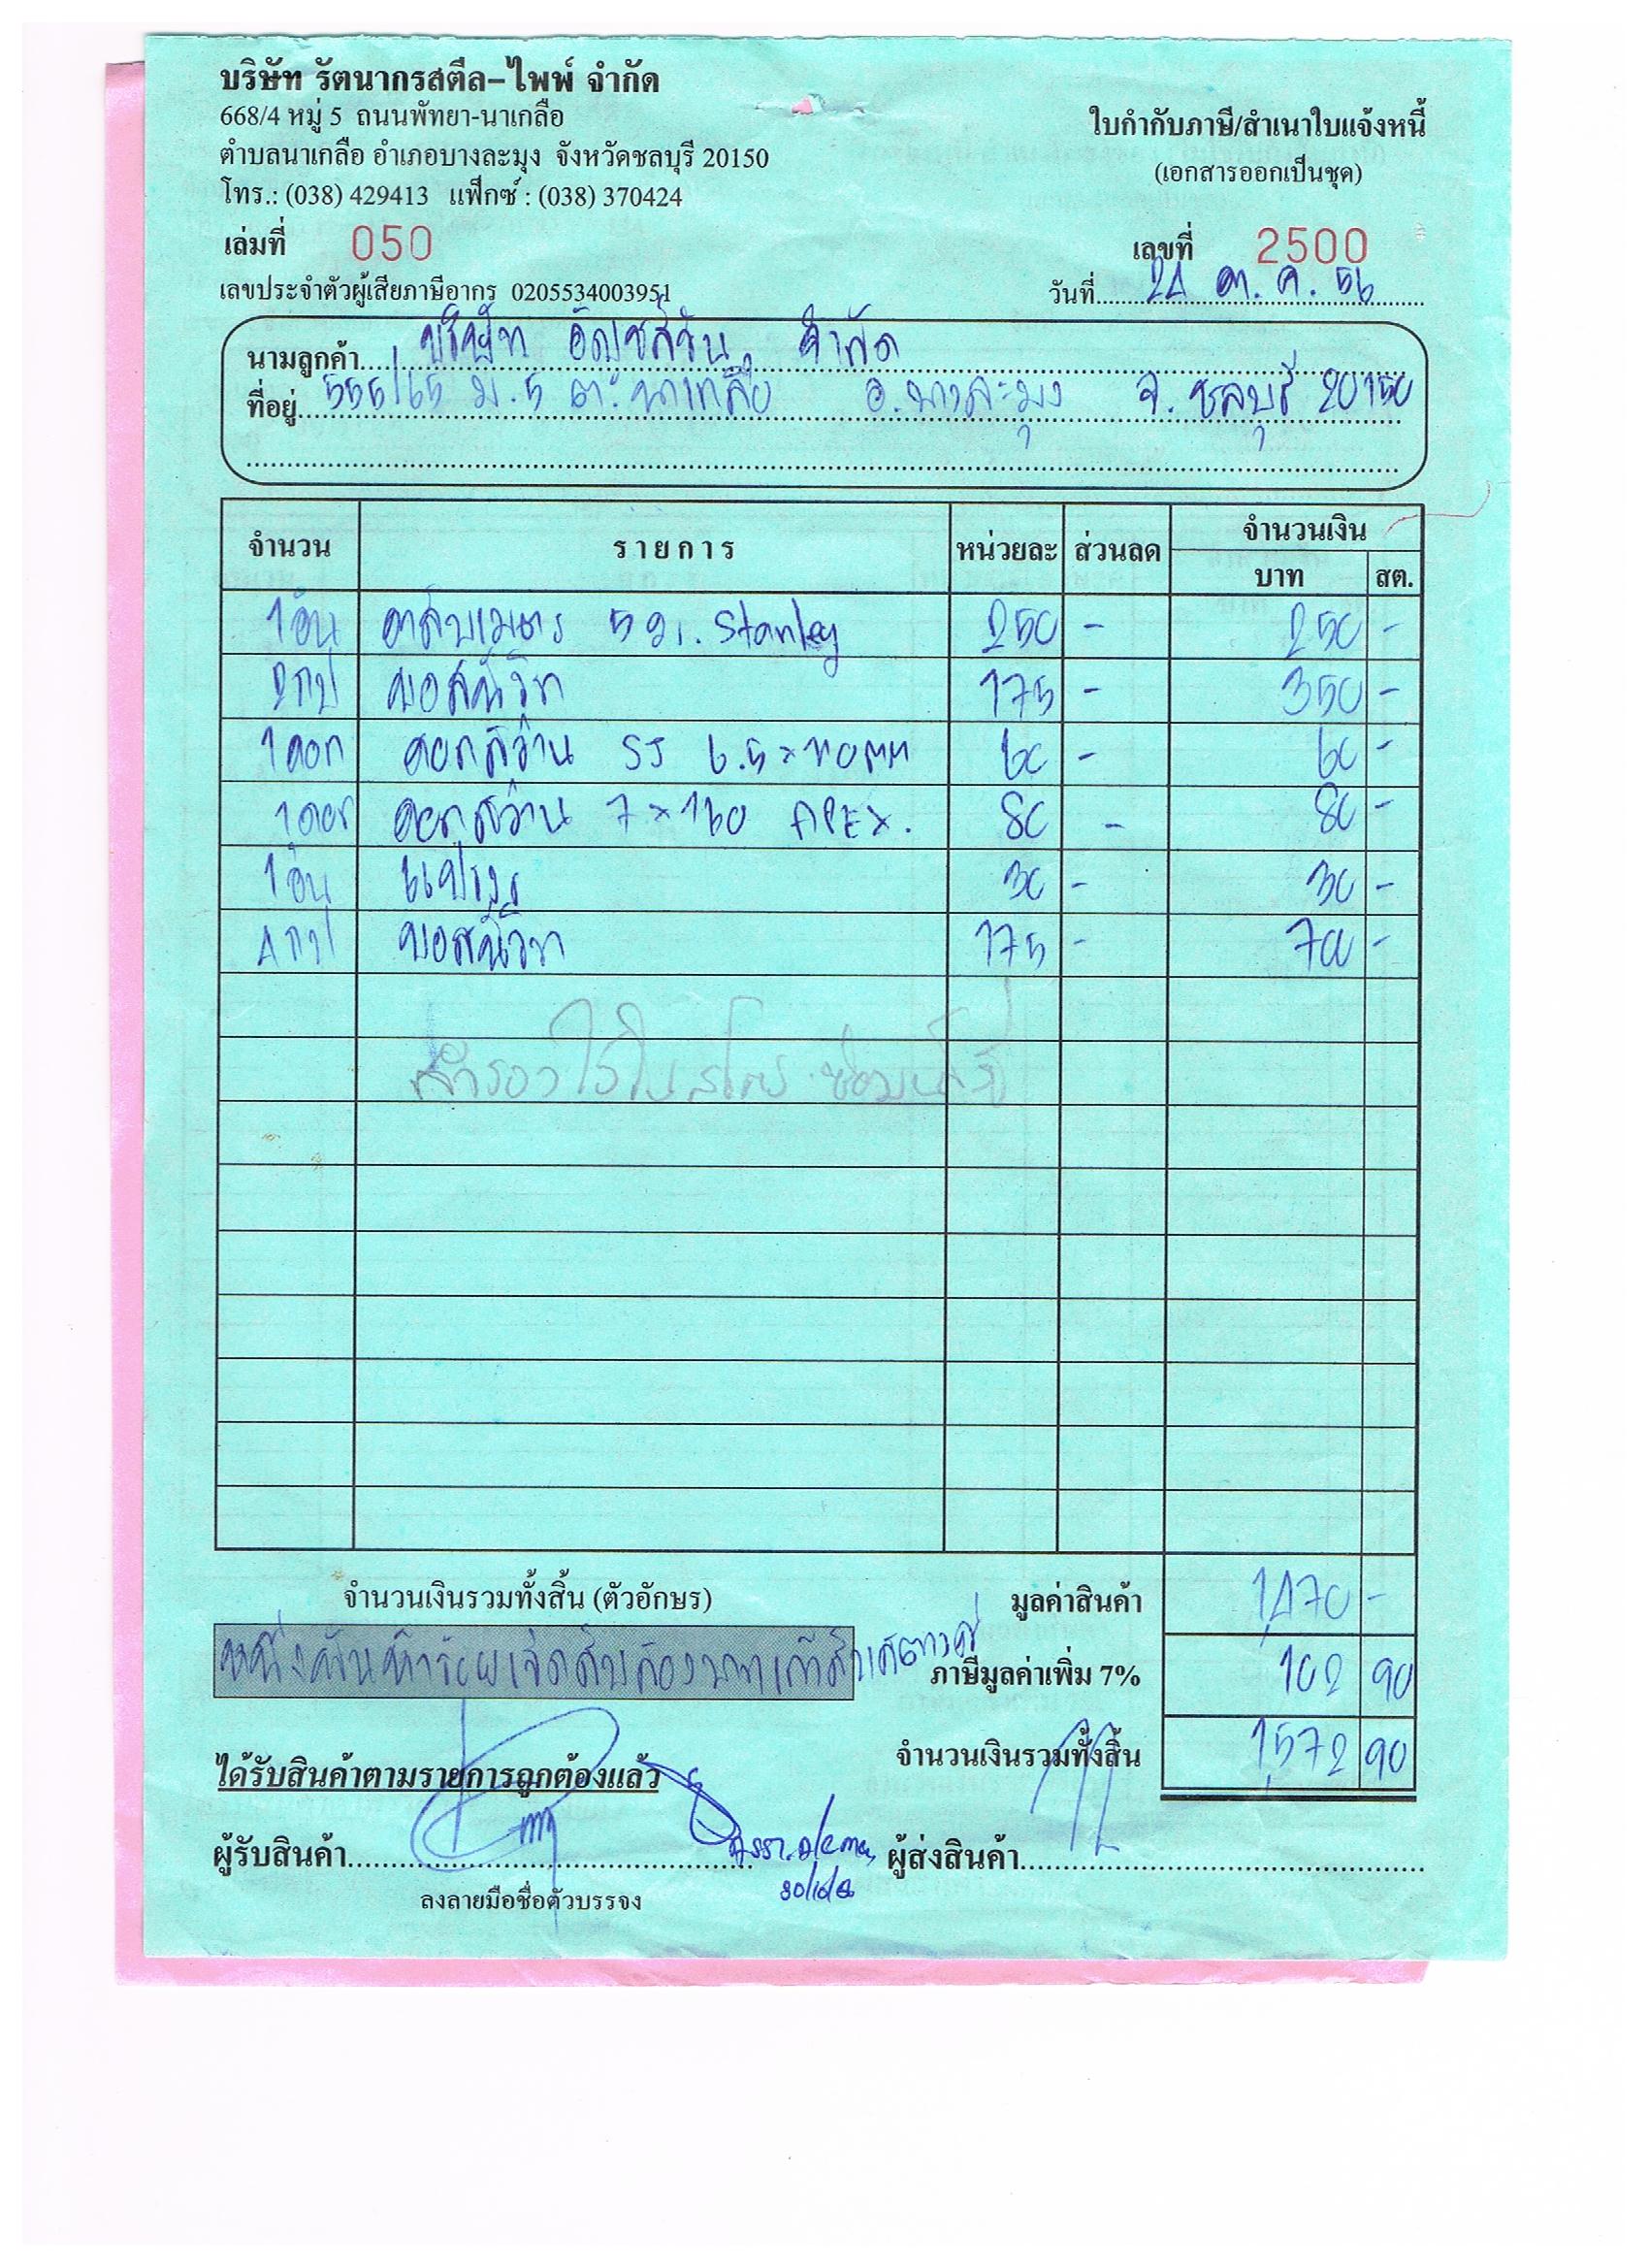 บริษัท รัตนากรสตีล-ไพพ์ จำกัด
668/4 หมู่ 5 ถนนพัทยา-นาเกลือ
ตำบลนาเกลือ อำเภอบางละมุง จังหวัดชลบุรี 20150
โทร.: (038) 429413 แฟ็กซ์ : (038) 370424
ใบกำกับภาษี/สำเนาใบแจ้งหนี้
(เอกสารออกเป็นชุด)
เล่มที่ 050
เลขที่ 2500
เลขประจำตัวผู้เสียภาษีอากร 0205534003951
วันที่ 24 ต.ค. 56
นามลูกค้า บริษัท จำกัด
ที่อยู่ 555/65 ม.5 ต.นาเกลือ อ.บางละมุง จ.ชลบุรี 20150
จำนวน รายการ หน่วยละ ส่วนลด จำนวนเงิน
บาท สต.
1อัน ตลับเมตร 5 ม. Stanley 250 - 250 -
2กป 175 - 350 -
1ดอก ดอกสว่าน 60 - 60 -
1ดอก ดอกสว่าน 7x160 APEX. 80 - 80 -
1อัน แปรง 30 - 30 -
4กป 175 - 700 -
สำรองไว้ใน
จำนวนเงินรวมทั้งสิ้น (ตัวอักษร)
มูลค่าสินค้า 1,470 -
หนึ่งพันห้าร้อยเจ็ดสิบสองบาทเก้าสิบสตางค์
ภาษีมูลค่าเพิ่ม 7% 102 90
จำนวนเงินรวมทั้งสิ้น 1,572 90
ได้รับสินค้าตามรายการถูกต้องแล้ว
ผู้รับสินค้า
ผู้ส่งสินค้า
ลงลายมือชื่อตัวบรรจง